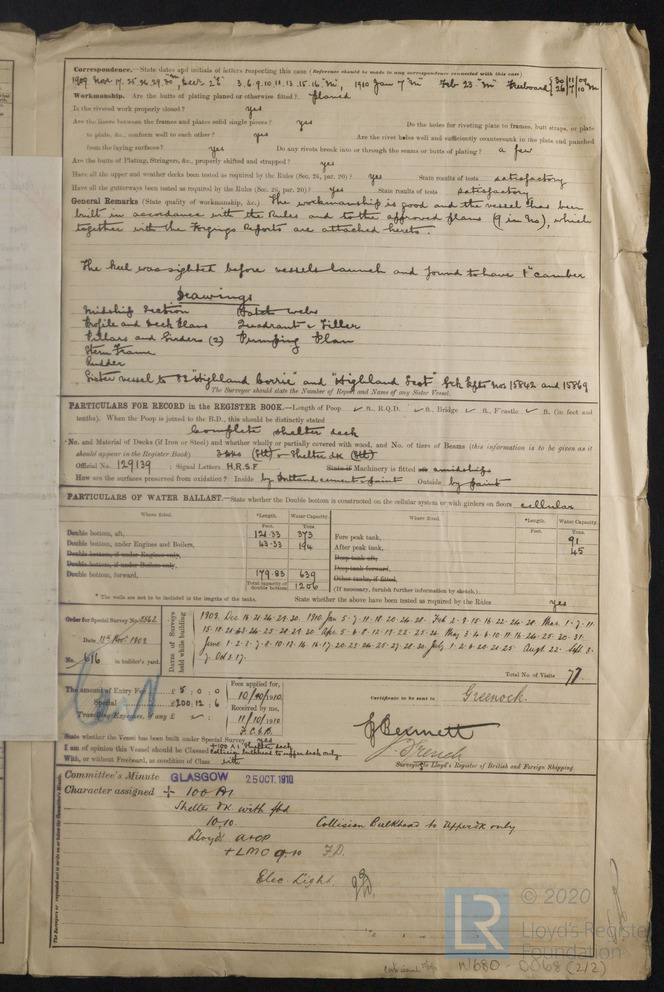 Correspondence.—State dates and initials of letters respecting this case (Reference should be made in any correspondence connected with this case)
1909 Nov 17. 25. 26. 29. 30 3, 6. 9. 10. 11. 13. 15. 16 1910 Jan 7 Feb 23 Freeboard 30/11/09 26/7/10
Workmanship. Are the butts of plating planed or otherwise fitted? planed
Is the riveted work properly closed? yes
Are the liners between the frames and plates solid single pieces? yes Do the holes for riveting plate to frames, butt straps, or plate
to plate, &c., conform well to each other? yes Are the rivet holes well and sufficiently countersunk in the plate and punched
from the faying surfaces? yes Do any rivets break into or through the seams or butts of plating? a few
Are the butts of Plating, Stringers, &c., properly shifted and strapped? yes
Have all the upper and weather decks been tested as required by the Rules (Sec. 26, par. 20)? yes State results of tests satisfactory
Have all the gutterways been tested as required by the Rules (Sec. 26, par. 20)? yes State results of tests satisfactory
General Remarks (State quality of workmanship, &c.) The workmanship is good and the vessel has been
built in accordance with the Rules and to the approved plans (9 in No), which
together with the Forgings Reports are attached hereto.
The keel was sighted before vessels launch and found to have 1" camber
Drawings
Midship Section Hatch webs
Profile and Deck Plans Quadrant & Tiller
Pillars and Girders (2) Pumping Plan
Stern Frame
Rudder
Sister vessel to SS "Highland Corrie" and "Highland Scot" Gck Rpts Nos 15842 and 15869
The Surveyor should state the Number of Report and Name of any Sister Vessel.
PARTICULARS FOR RECORD in the REGISTER BOOK.—Length of Poop ✓ ft., R.Q.D. ✓ ft., Bridge ✓ ft., F'castle ✓ ft. (in feet and
tenths). When the Poop is joined to the B.D., this should be distinctly stated
Complete shelter deck
No. and Material of Decks (if Iron or Steel) and whether wholly or partially covered with wood, and No. of tiers of Beams (this information is to be given as it
should appear in the Register Book) 3 dks (Stl) & Shelter dk (Stl)
Official No. 129139 ; Signal Letters H.R.S.F State if Machinery is fitted amidships
How are the surfaces preserved from oxidation? Inside by Portland cement & paint Outside by paint
PARTICULARS OF WATER BALLAST.—State whether the Double bottom is constructed on the cellular system or with girders on floors cellular
Where fitted. *Length. Water Capacity. Where fitted. *Length. Water Capacity.
Feet. Tons. Feet. Tons.
Double bottom, aft, 121.33 373 Fore peak tank, 91
Double bottom, under Engines and Boilers, 43.33 194 After peak tank, 45
Double bottom, if under Engines only, Deep tank aft,
Double bottom, if under Boilers only, Deep tank forward,
Double bottom, forward, 179.83 639 Other tanks, if fitted,
Total capacity of double bottom 1206 (If necessary, furnish further information by sketch.)
* The wells are not to be included in the lengths of the tanks. State whether the above have been tested as required by the Rules yes
Order for Special Survey No.
Date 11th Nov. 1909
No. 616 in builder's yard.
Dates of Surveys held while building
Total No. of Visits 77
The amount of Entry Fee £ 5 : 0 : 0 Fees applied for,
Special £200. 12. 6 10/10/1910
Travelling Expenses, if any £ Received by me,
11/10/1910
Certificate to be sent to Greenock.
J Bennett
J. French
Surveyor to Lloyd's Register of British and Foreign Shipping
State whether the Vessel has been built under Special Survey yes
I am of opinion this Vessel should be Classed +100 A1 Shelter deck Collision bulkhead to upper deck only
With, or without Freeboard, as condition of Class with
Committee's Minute GLASGOW 25 OCT. 1910
Character assigned + 100 A1
Shelter dk with fbd
10.10. Collision Bulkhead to Upper dk only
Lloyd's A&CP
+ LMC 9.10 F.D.
Elec. Light.
LR
© 2020
Lloyd's Register
Foundation
W680 - 0068 (2/2)